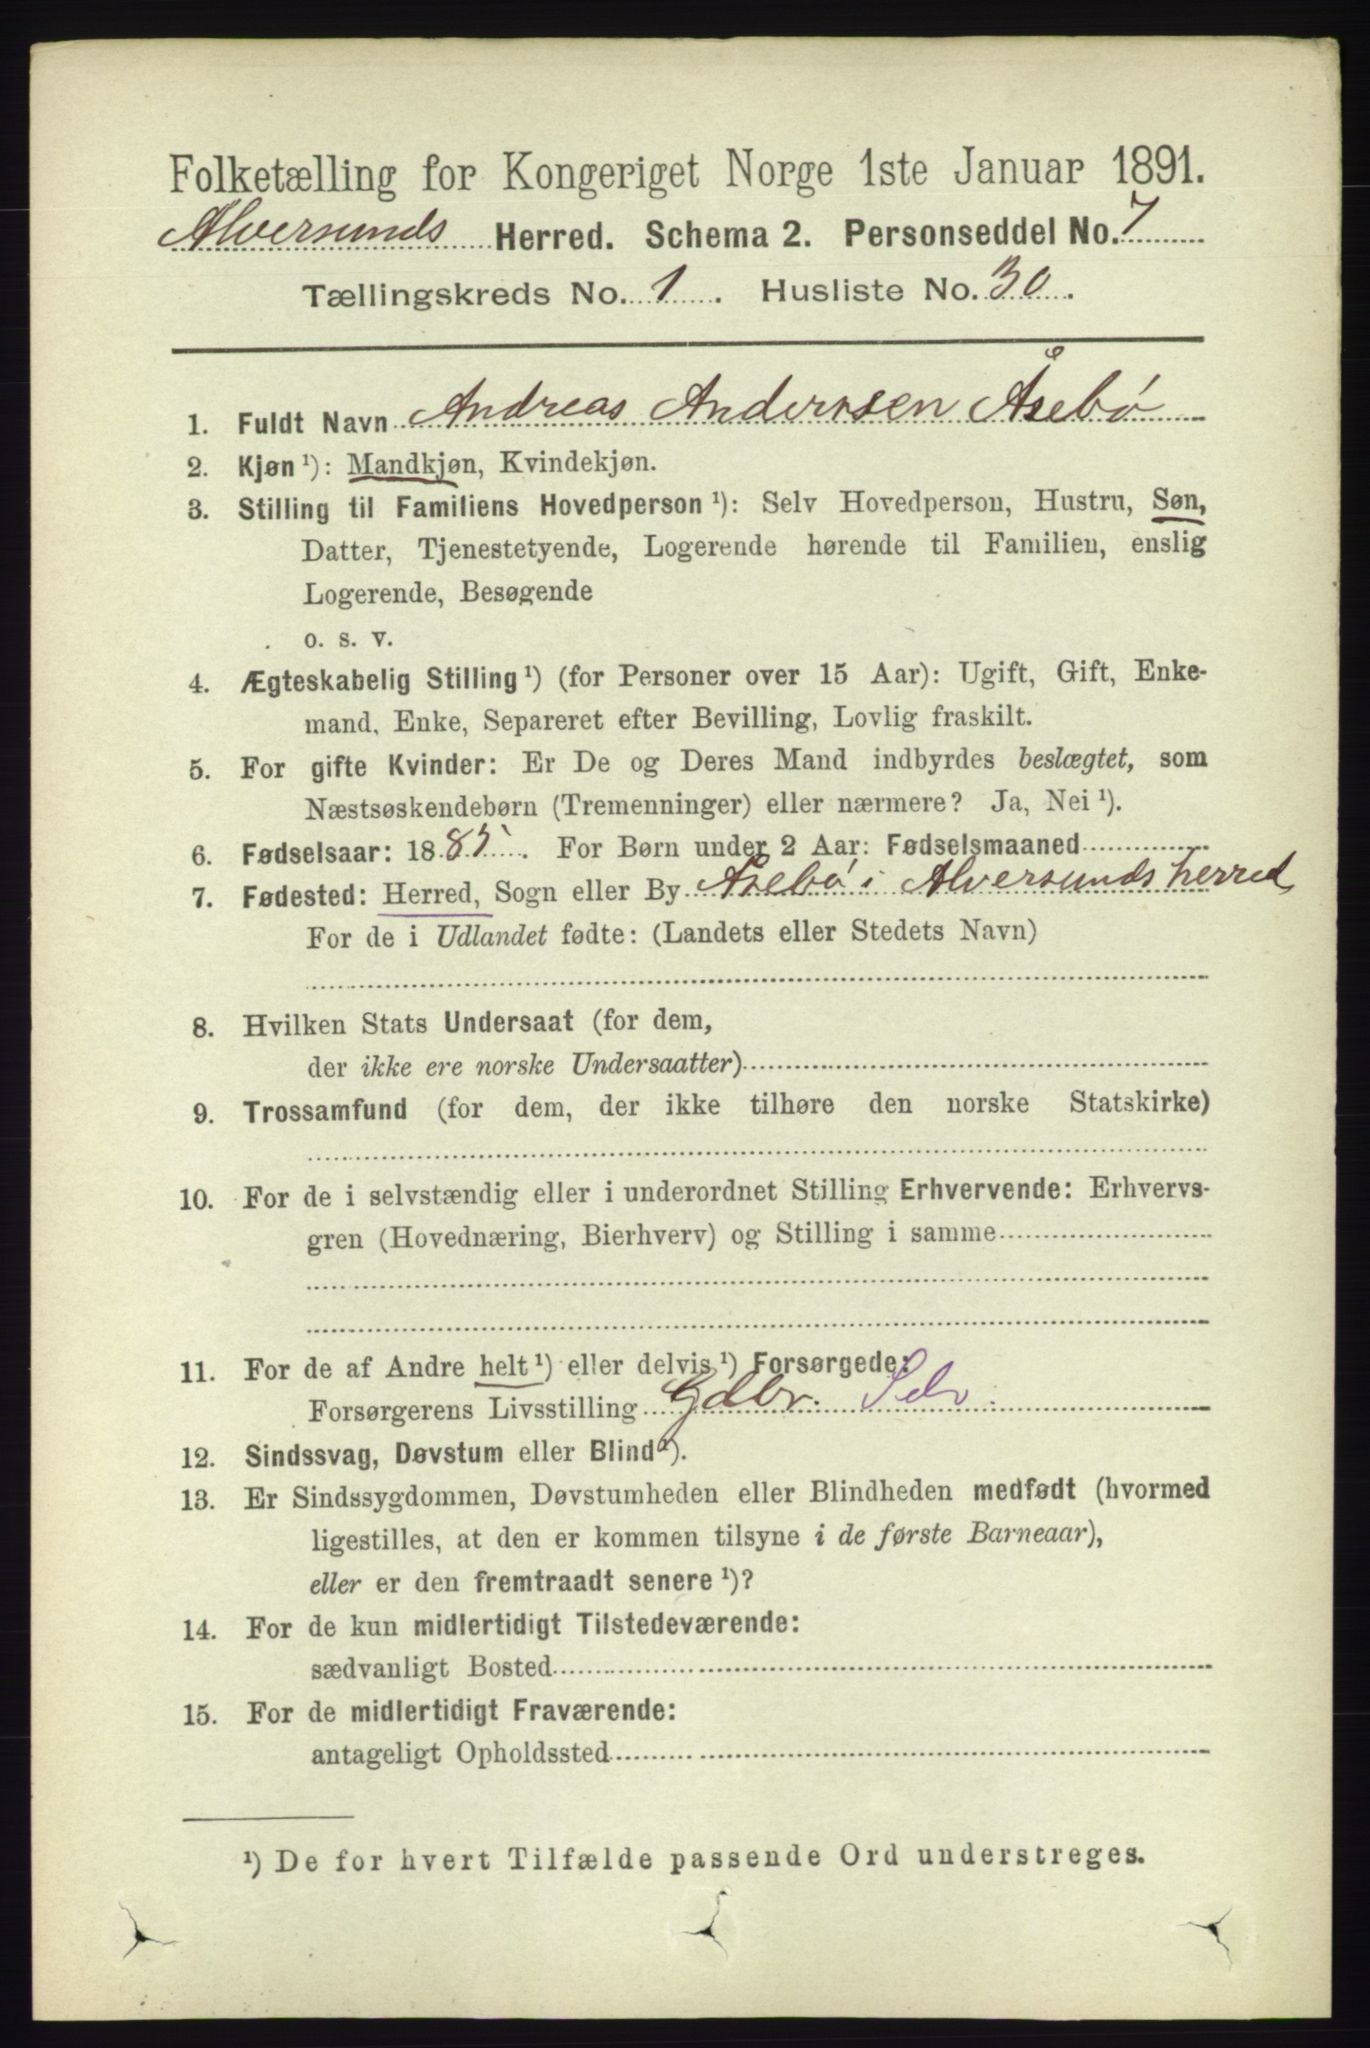 Folketælling for Kongeriget Norge 1ste Januar 1891.
Alversunds Herred. Schema 2. Personseddel No. 7
Tællingskreds No. 1. Husliste No. 30.
1. Fuldt Navn Andreas Andersen Åsebø
2. Kjøn ¹): Mandkjøn, Kvindekjøn.
3. Stilling til Familiens Hovedperson ¹): Selv Hovedperson, Hustru, Søn,
Datter, Tjenestetyende, Logerende hørende til Familien, enslig
Logerende, Besøgende
o. s. v.
4. Ægteskabelig Stilling ¹) (for Personer over 15 Aar): Ugift, Gift, Enke-
mand, Enke, Separeret efter Bevilling, Lovlig fraskilt.
5. For gifte Kvinder: Er De og Deres Mand indbyrdes beslægtet, som
Næstsøskendebørn (Tremenninger) eller nærmere? Ja, Nei ¹).
6. Fødselsaar: 1885. For Børn under 2 Aar: Fødselsmaaned
7. Fødested: Herred, Sogn eller By Åsebø i Alversunds herred
For de i Udlandet fødte: (Landets eller Stedets Navn)
8. Hvilken Stats Undersaat (for dem,
der ikke ere norske Undersaatter)
9. Trossamfund (for dem, der ikke tilhøre den norske Statskirke)
10. For de i selvstændig eller i underordnet Stilling Erhvervende: Erhvervs-
gren (Hovednæring, Bierhverv) og Stilling i samme
11. For de af Andre helt ¹) eller delvis ¹) Forsørgede:
Forsørgerens Livsstilling Gdbr. Selv.
12. Sindssvag, Døvstum eller Blind ¹).
13. Er Sindssygdommen, Døvstumheden eller Blindheden medfødt (hvormed
ligestilles, at den er kommen tilsyne i de første Barneaar),
eller er den fremtraadt senere ¹)?
14. For de kun midlertidigt Tilstedeværende:
sædvanligt Bosted
15. For de midlertidigt Fraværende:
antageligt Opholdssted
¹) De for hvert Tilfælde passende Ord understreges.